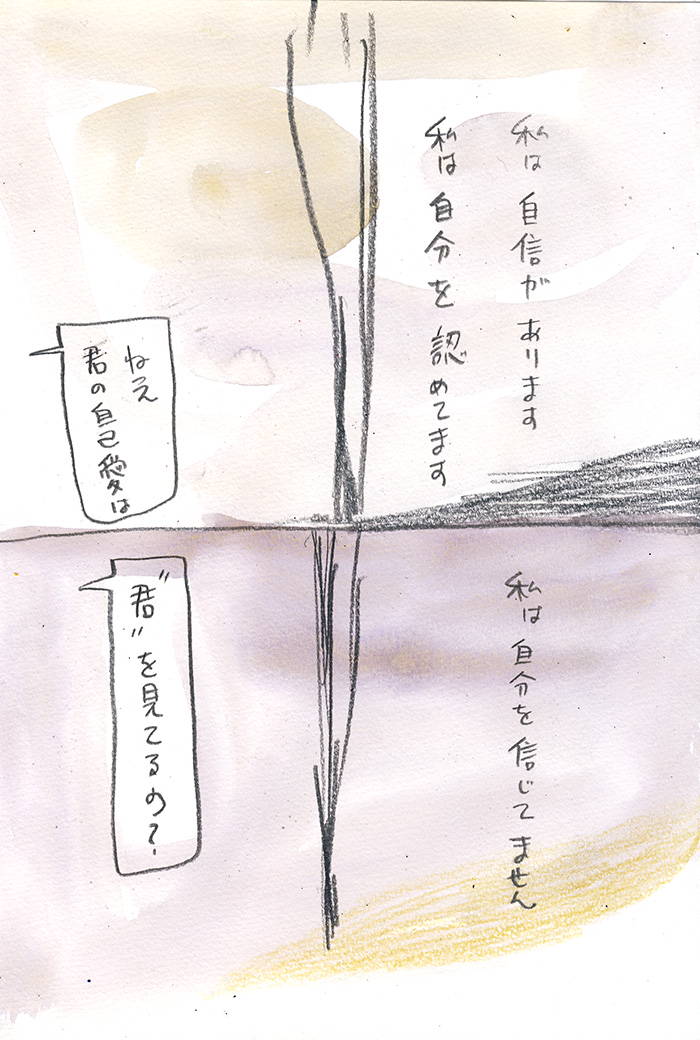 私は自信があります
私は自分を認めてます
ねえ
君の自己愛は
私は自分を信じてません
”君”を見てるの？